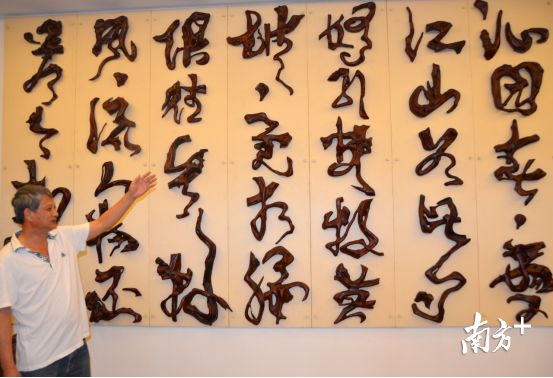 沁园春·雪
江山如此多
娇引無数英
雄·竞折腰
俱往矣数
风·流人物还
看今朝
南方+